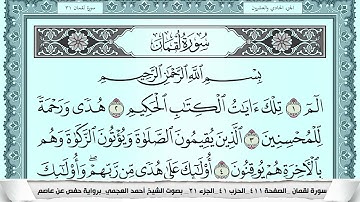 الجزء الحادي والعشرون
سورة لقمان ٣١
سُورَةُ لُقْمَان
بِسْمِ ٱللَّهِ ٱلرَّحْمَٰنِ ٱلرَّحِيمِ
الٓمٓ ١ تِلْكَ ءَايَٰتُ ٱلْكِتَٰبِ ٱلْحَكِيمِ ٢ هُدًى وَرَحْمَةً
لِّلْمُحْسِنِينَ ٣ ٱلَّذِينَ يُقِيمُونَ ٱلصَّلَوٰةَ وَيُؤْتُونَ ٱلزَّكَوٰةَ وَهُم
بِٱلْءَاخِرَةِ هُمْ يُوقِنُونَ ٤ أُو۟لَٰٓئِكَ عَلَىٰ هُدًى مِّن رَّبِّهِمْ ۖ وَأُو۟لَٰٓئِكَ
سورة لقمان _ الصفحة ٤١١ _ الحزب ٤١ _ الجزء ٢١ _ بصوت الشيخ أحمد العجمي _ برواية حفص عن عاصم